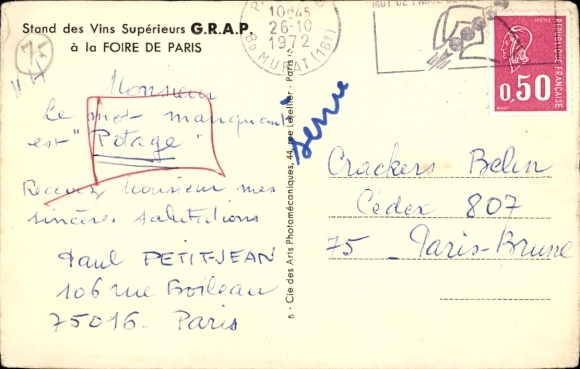 Stand des Vins Supérieurs G.R.A.P.
à la FOIRE DE PARIS
75
Monsieur
le mot manquant
est "Potage"
Recevez Monsieur mes
sincères salutations
Paul PETIT-JEAN
106 rue Boileau
75016. Paris
5 - Cie des Arts Photomécaniques, 44, rue Letellier - Paris 15
10H45
26-10
1972
Bd MURAT (16e)
REPUBLIQUE FRANÇAISE
POSTES
0,50
Crackers Belin
Cédex 807
75 - Paris-Brune